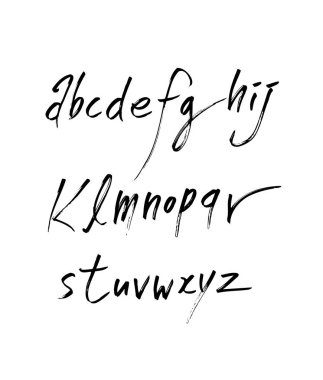 abcdefghij
Klmnopqr
stuvwxyz